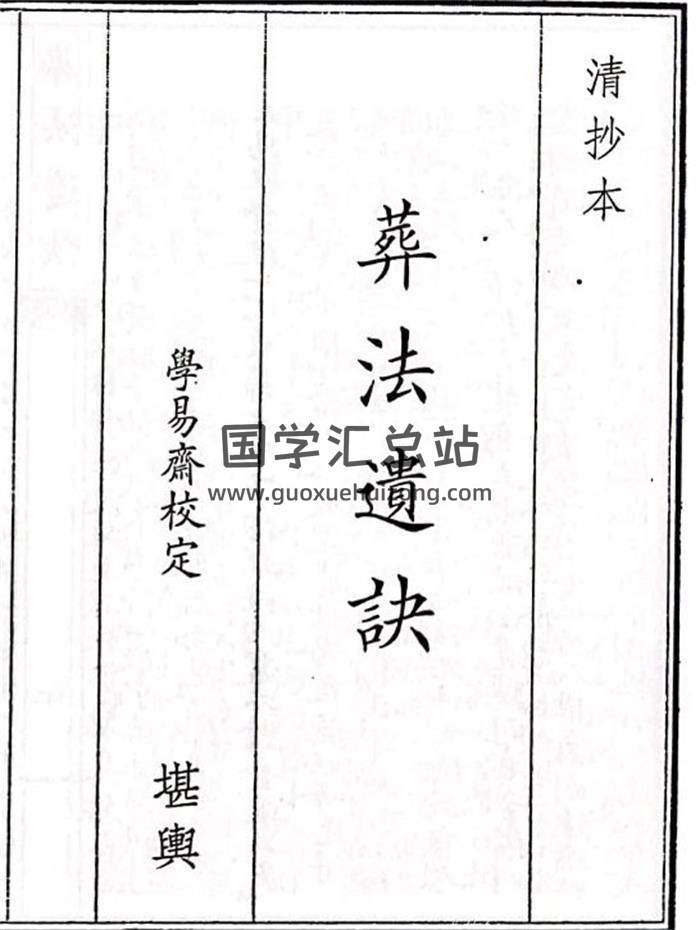 清抄本
葬法遺訣
學易齋校定
堪輿
国学汇总站
www.guoxuehuizong.com